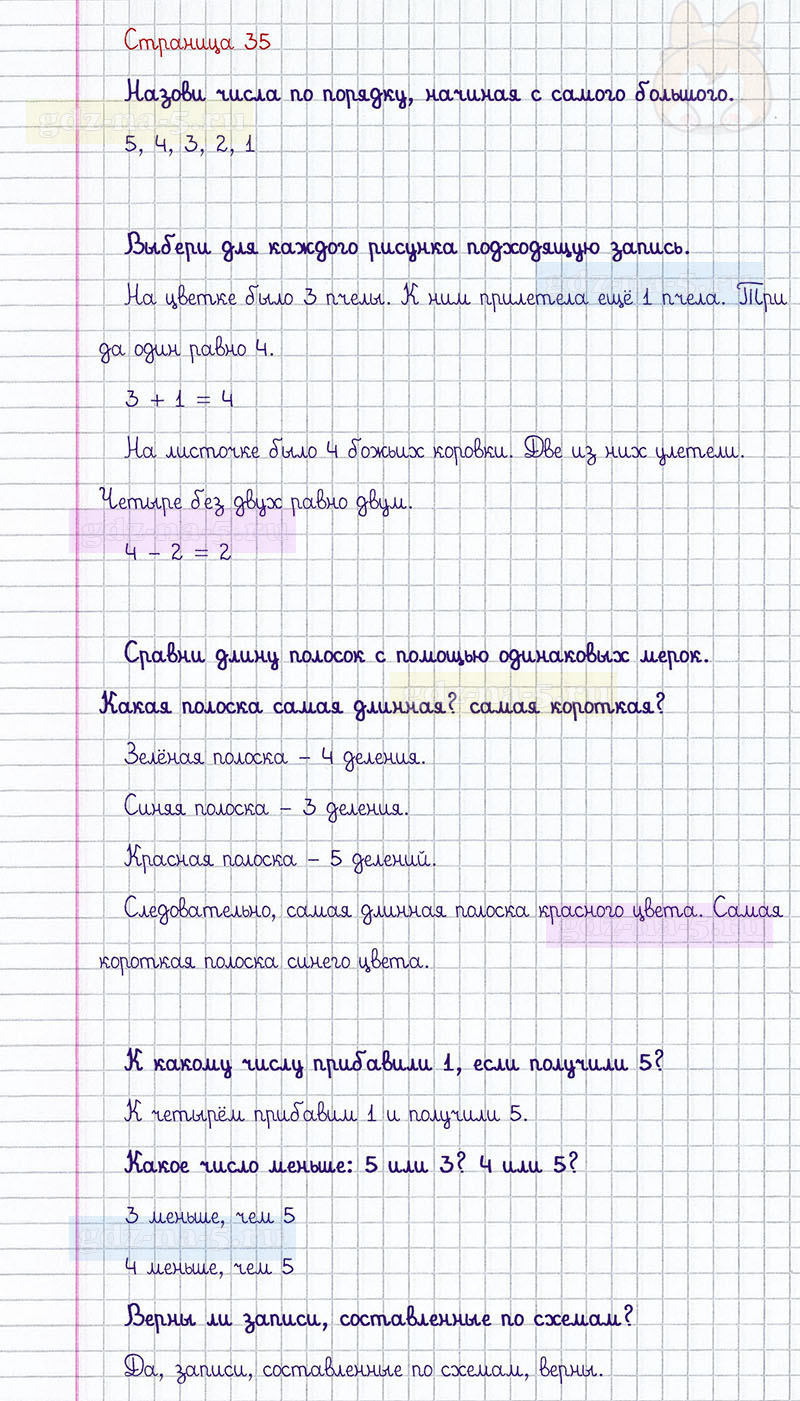 Страница 35
Назови числа по порядку, начиная с самого большого.
gdz-na-5.ru
5, 4, 3, 2, 1
Выбери для каждого рисунка подходящую запись.
gdz-na-5.ru
На цветке было 3 пчелы. К ним прилетела ещё 1 пчела. Три
да один равно 4.
3 + 1 = 4
На листочке было 4 божьих коровки. Две из них улетели.
Четыре без двух равно двум.
gdz-na-5.ru
4 – 2 = 2
Сравни длину полосок с помощью одинаковых мерок.
gdz-na-5.ru
Какая полоска самая длинная? самая короткая?
Зелёная полоска – 4 деления.
Синяя полоска – 3 деления.
Красная полоска – 5 делений.
Следовательно, самая длинная полоска красного цвета. Самая
gdz-na-5.ru
короткая полоска синего цвета.
К какому числу прибавили 1, если получили 5?
К четырём прибавим 1 и получили 5.
Какое число меньше: 5 или 3? 4 или 5?
3 меньше, чем 5
gdz-na-5.ru
4 меньше, чем 5
Верны ли записи, составленные по схемам?
Да, записи, составленные по схемам, верны.